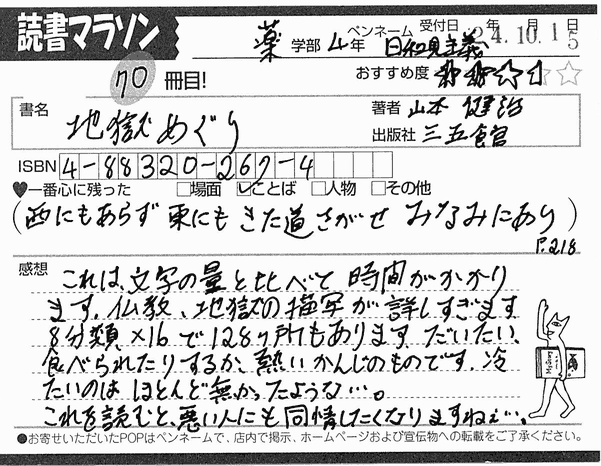 読書マラソン
薬 学部 4年 ペンネーム 日和見主義 受付日 年 月 日 24.10.15
70 冊目! おすすめ度
書名 地獄めぐり
著者 山本 健治
出版社 三五館
ISBN 4-88320-267-4
一番心に残った 場面 ことば 人物 その他
(西にもあらず 東にも きた道さがせ みなみにあり)
P.218
感想 これは、文字の量と比べて 時間がかかり
ます。仏教、地獄の描写が 詳しすぎます
8分類×16で128ヶ所もあります。だいたい、
食べられたりするか、熱いかんじのものです。冷
たいのは ほとんど無かったような…。
これを読むと、悪い人にも同情したくなりますねぇ…。
●お寄せいただいたPOPはペンネームで、店内で掲示、ホームページおよび宣伝物への転載をご了承ください。